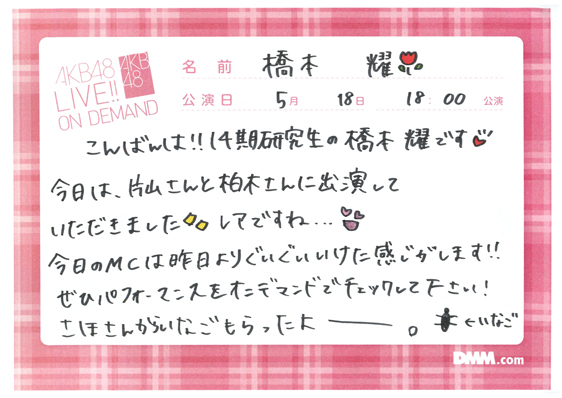 AKB48
LIVE!!
ON DEMAND
AKB
48
名前 橋本 耀
公演日 5月 18日 18:00 公演
こんばんは!!14期研究生の橋本 耀です
今日は、片山さんと柏木さんに出演して
いただきました レアですね...
今日のMCは昨日よりぐいぐいいけた感じがします!!
ぜひパフォーマンスをオンデマンドでチェックして下さい!
さほさんからいなごもらったよー。 ←いなご
DMM.com